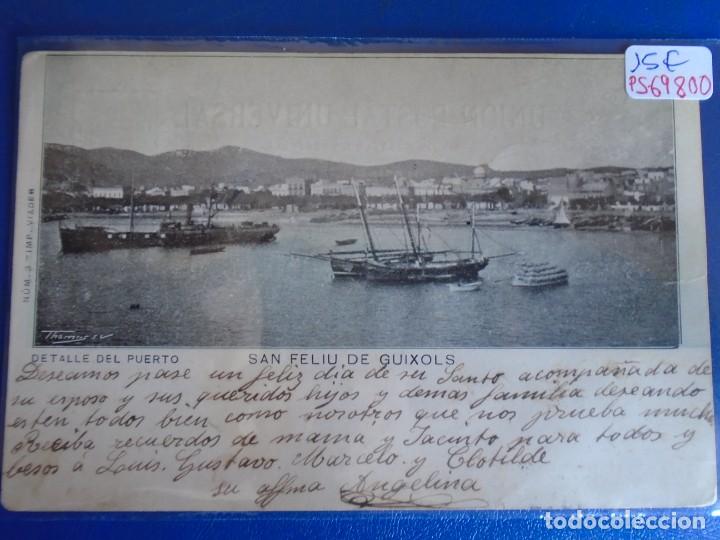 15€
PS69800
UNION POSTAL UNIVERSAL
NÚM. 3 - IMP. VIADER
Thomas
DETALLE DEL PUERTO
SAN FELIU DE GUIXOLS
Deseamos pase un feliz dia de su Santo acompañada de
su esposo y sus queridos hijos y demas familia deseando
esten todos bien como nosotros que nos prueba mucho
Reciba recuerdos de mama y Jacinto para todos y
besos á Louis, Gustavo, Marcelo y Clotilde
su affma Angelina
todocoleccion.net